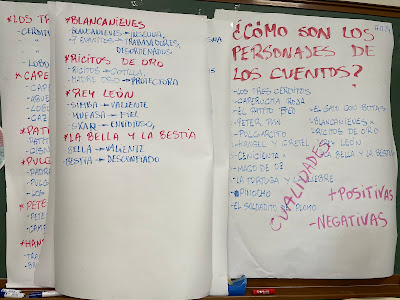 *LOS TR
-CERDIT
-LOBO
*CAPE
-CAPE
-ABUE
-LOBO
-CAZ
*PATI
-PATIT
*PULG
-PADR
-PULG
-LOS
*PETE
-PETE
-CAMP
*HANS
-TRA
*BLANCANIEVES
BLANCANIEVES → INSEGURA,
7 ENANITOS → TRABAJADORES,
DESORDENADOS
*RICITOS DE ORO
-RICITOS → COTILLA
-MADRE OSO → PROTECTORA
*REY LEÓN
SIMBA → VALIENTE
MUFASA → FIEL
SKAR → ENVIDIOSO,
*LA BELLA Y LA BESTIA
BELLA → VALIENTE
BESTIA → DESCONFIADO
¿CÓMO SON LOS
PERSONAJES DE
LOS CUENTOS?
-LOS TRES CERDITOS
-CAPERUCITA ROJA
-EL PATITO FEO
-PETER PAN
-PULGARCITO
-HANSEL Y GRETEL
-CENICIENTA x
-MAGO DE OZ
-LA TORTUGA Y LA LIEBRE
-PINOCHO
-EL SOLDADITO DE PLOMO
-EL GATO CON BOTAS
-BLANCANIEVES x
-RICITOS DE ORO
REY LEÓN
LA BELLA Y LA BESTIA x
CUALIDADES
+POSITIVAS
-NEGATIVAS